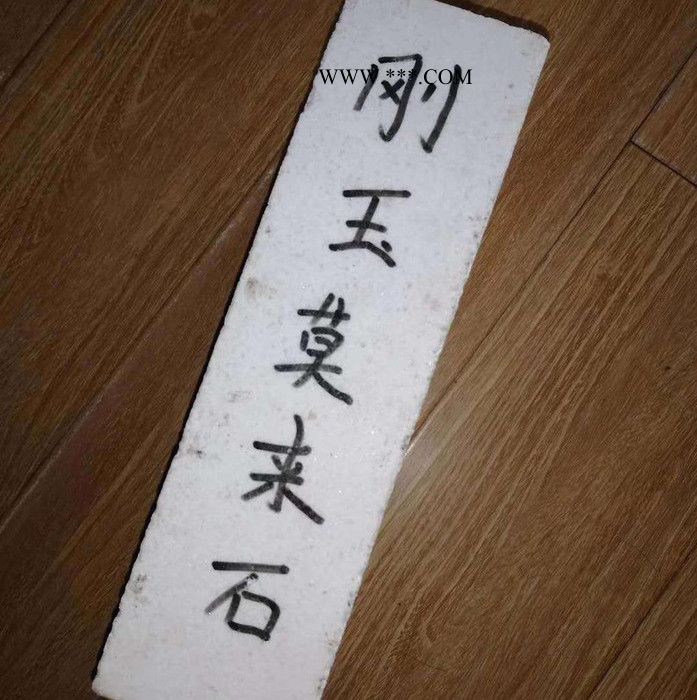 WWW.***.COM
刚玉莫来石